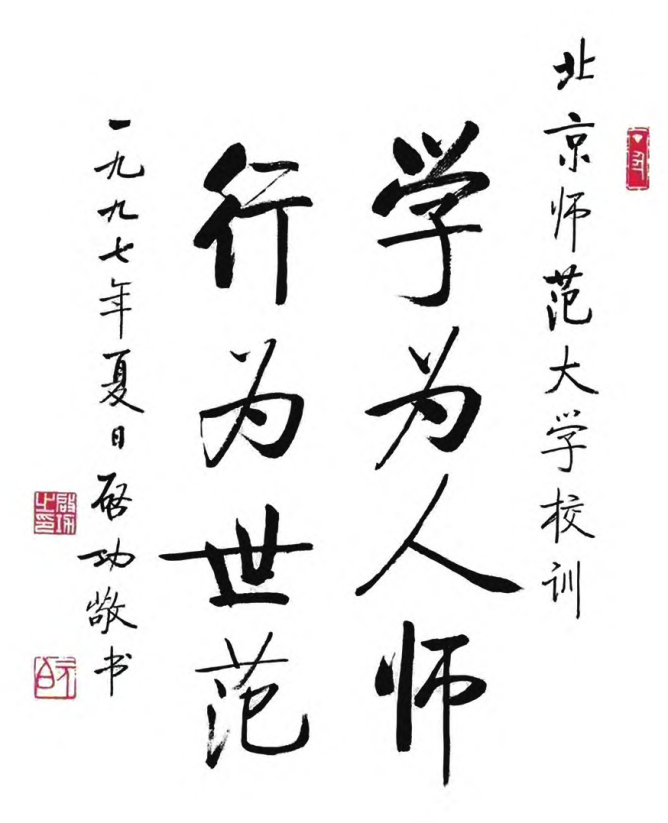 北京师范大学校训
学为人师
行为世范
一九九七年夏日启功敬书
启功之印
元白